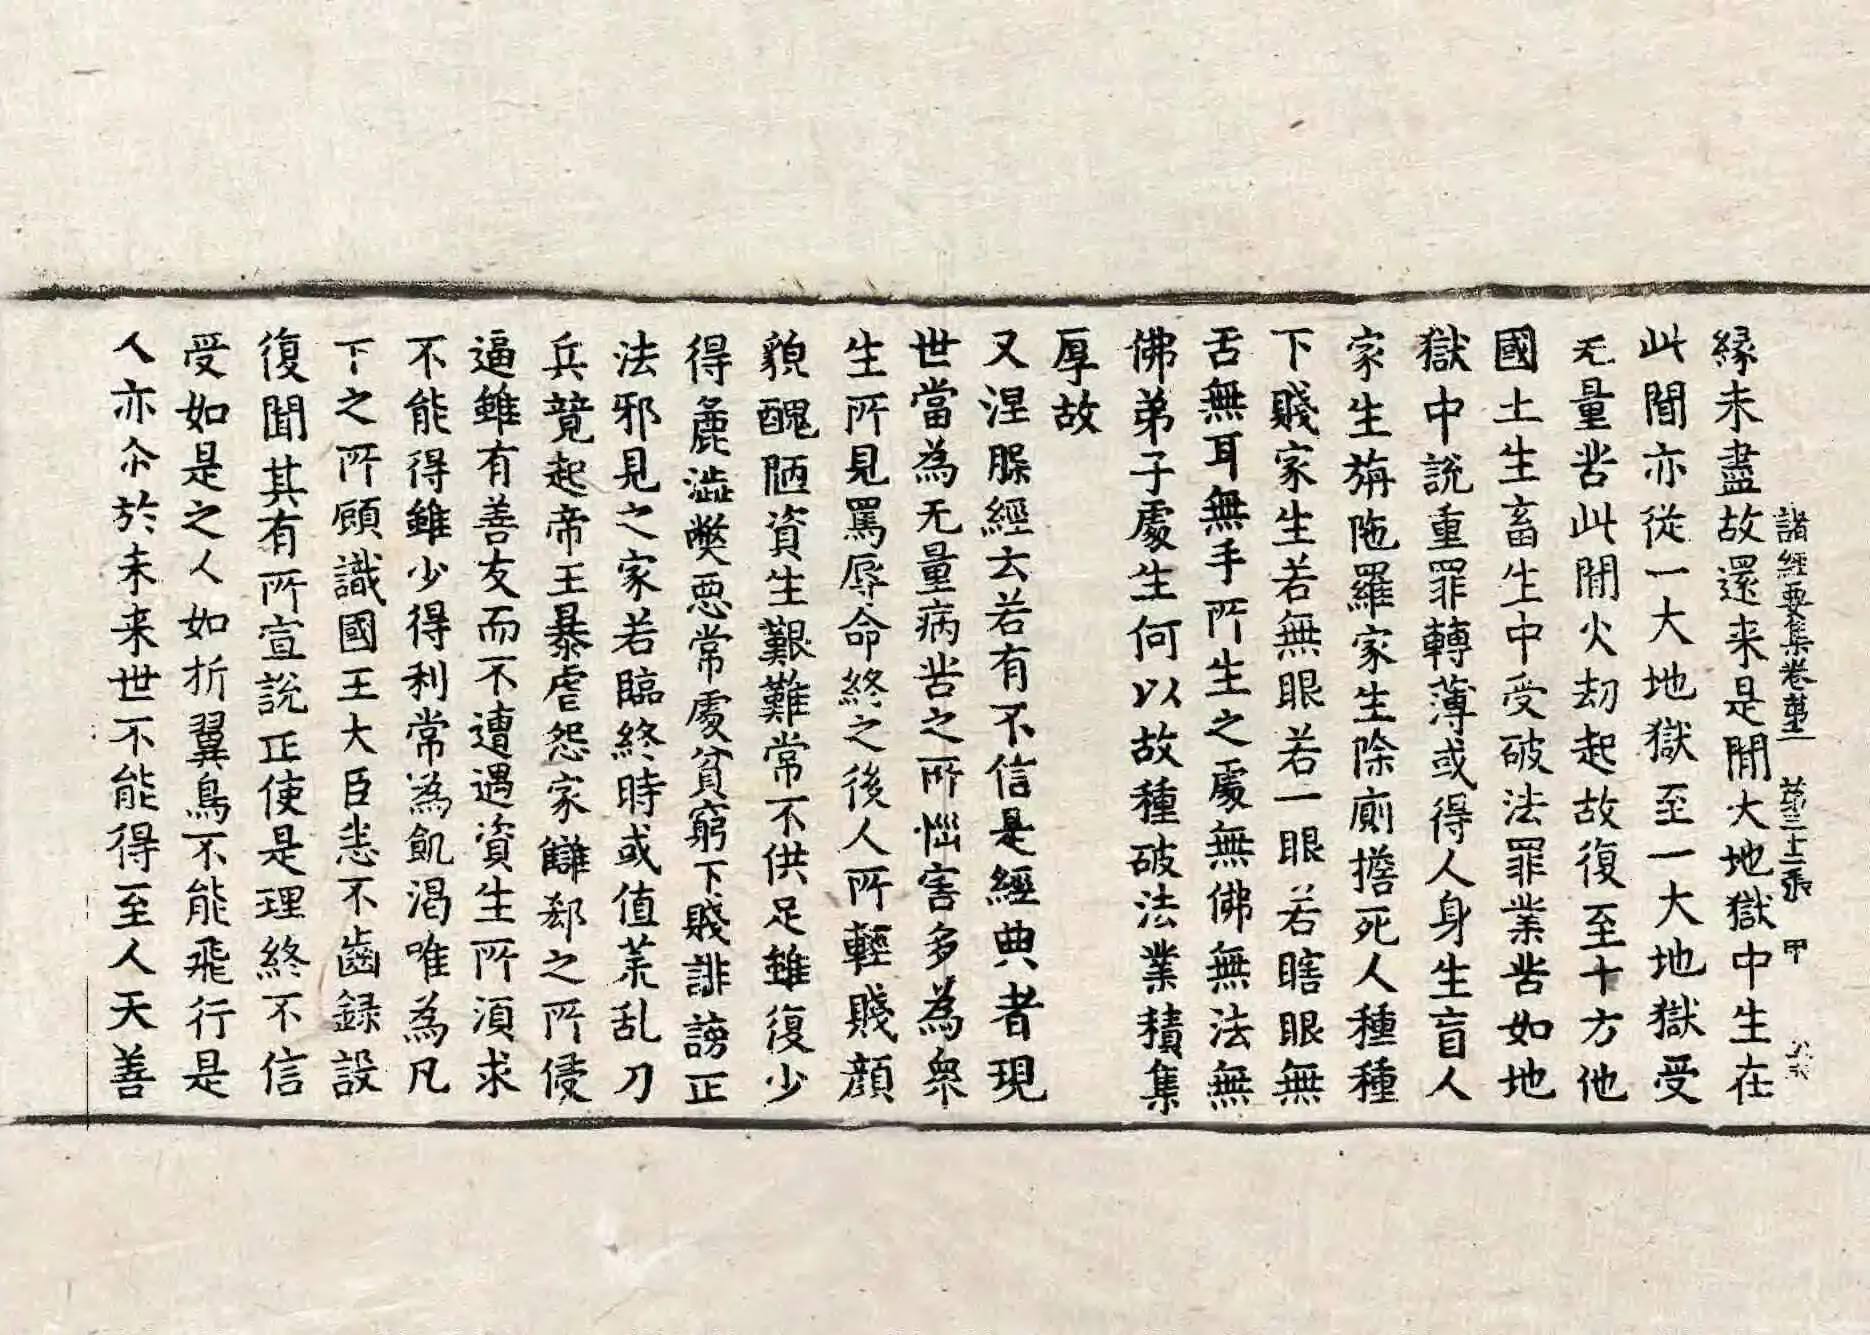 諸經要集卷苐二 苐三十二張 甲
緣未盡故還来是閒大地獄中生在
此閒亦從一大地獄至一大地獄受
无量苦此閒火劫起故復至十方他
國土生畜生中受破法罪業苦如地
獄中說重罪轉薄或得人身生盲人
家生旃陁羅家生除廁擔死人種種
下賤家生若無眼若一眼若瞎眼無
舌無耳無手所生之處無佛無法無
佛弟子處生何以故種破法業積集
厚故
又涅脲經云若有不信是經典者現
世當為无量病苦之所惱害多為衆
生所見罵辱命終之後人所輕賤顔
貌醜陋資生艱難常不供足雖復少
得麁澁弊惡常處貧窮下賤誹謗正
法邪見之家若臨終時或值荒乱刀
兵竟起帝王暴虐怨家讎郄之所侵
逼雖有善友而不遭遇資生所湏求
不能得雖少得利常為飢渴唯為凡
下之所顧識國王大臣悉不齒録設
復聞其有所宣說正使是理終不信
受如是之人如折翼鳥不能飛行是
人亦尒於未来世不能得至人天善